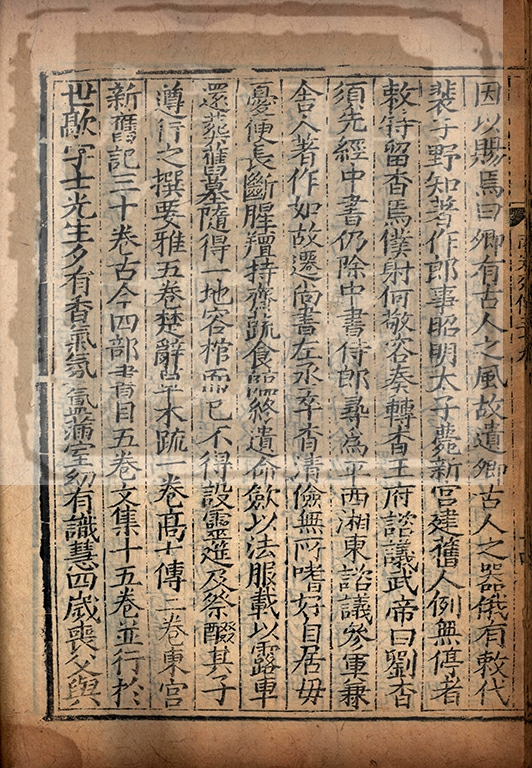 因以賜焉曰卿有古人之風故遺卿古人之器俄有敕代
裴子野知著作郎事昭明太子薨新宮建舊人例無停者
敕特留杳焉僕射何敬容奏轉杳王府諮議武帝曰劉杳
須先經中書仍除中書侍郎尋為平西湘東諮議參軍兼
舍人著作如故遷尚書左丞卒杳清儉無所嗜好自居母
憂便長斷腥羶持齋蔬食臨終遺命歛以法服載以露車
還葬舊墓隨得一地容棺而已不得設靈筵及祭醊其子
遵行之撰要雅五卷楚辭草木疏一卷高士傳二卷東宮
新舊記三十卷古今四部書目五卷文集十五卷並行於
世歊字士光生夕有香氣氛氳滿室幼有識慧四歲喪父與